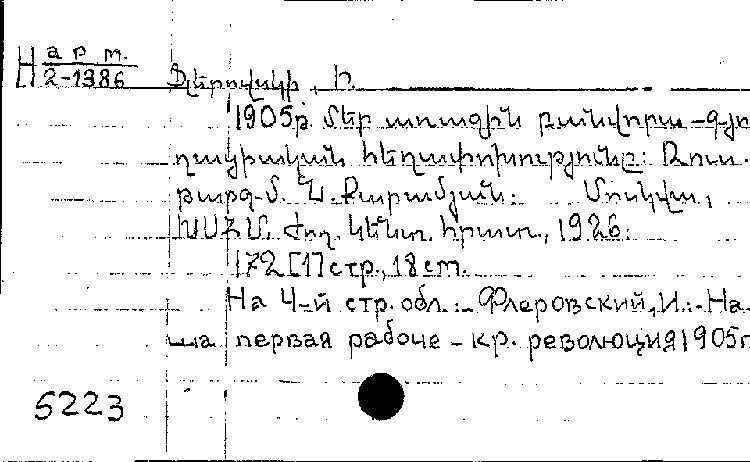 Н арт.
2-1386
Ֆլերովսկի, Ի.
1905թ. Մեր առաջին բանվորա-գյու
ղացիական հեղափոխությունը: Ռուս.
թարգ. Մ. Ն. Քարամյան: Մոսկվա,
ԽՍՀՄ. Ժող. Կենտ. հրատ., 1926.
172[1] стр., 18 см.
На 4-й стр. обл.:- Флеровский, И.:- На-
ша первая рабоче-кр. революция 1905г
5223